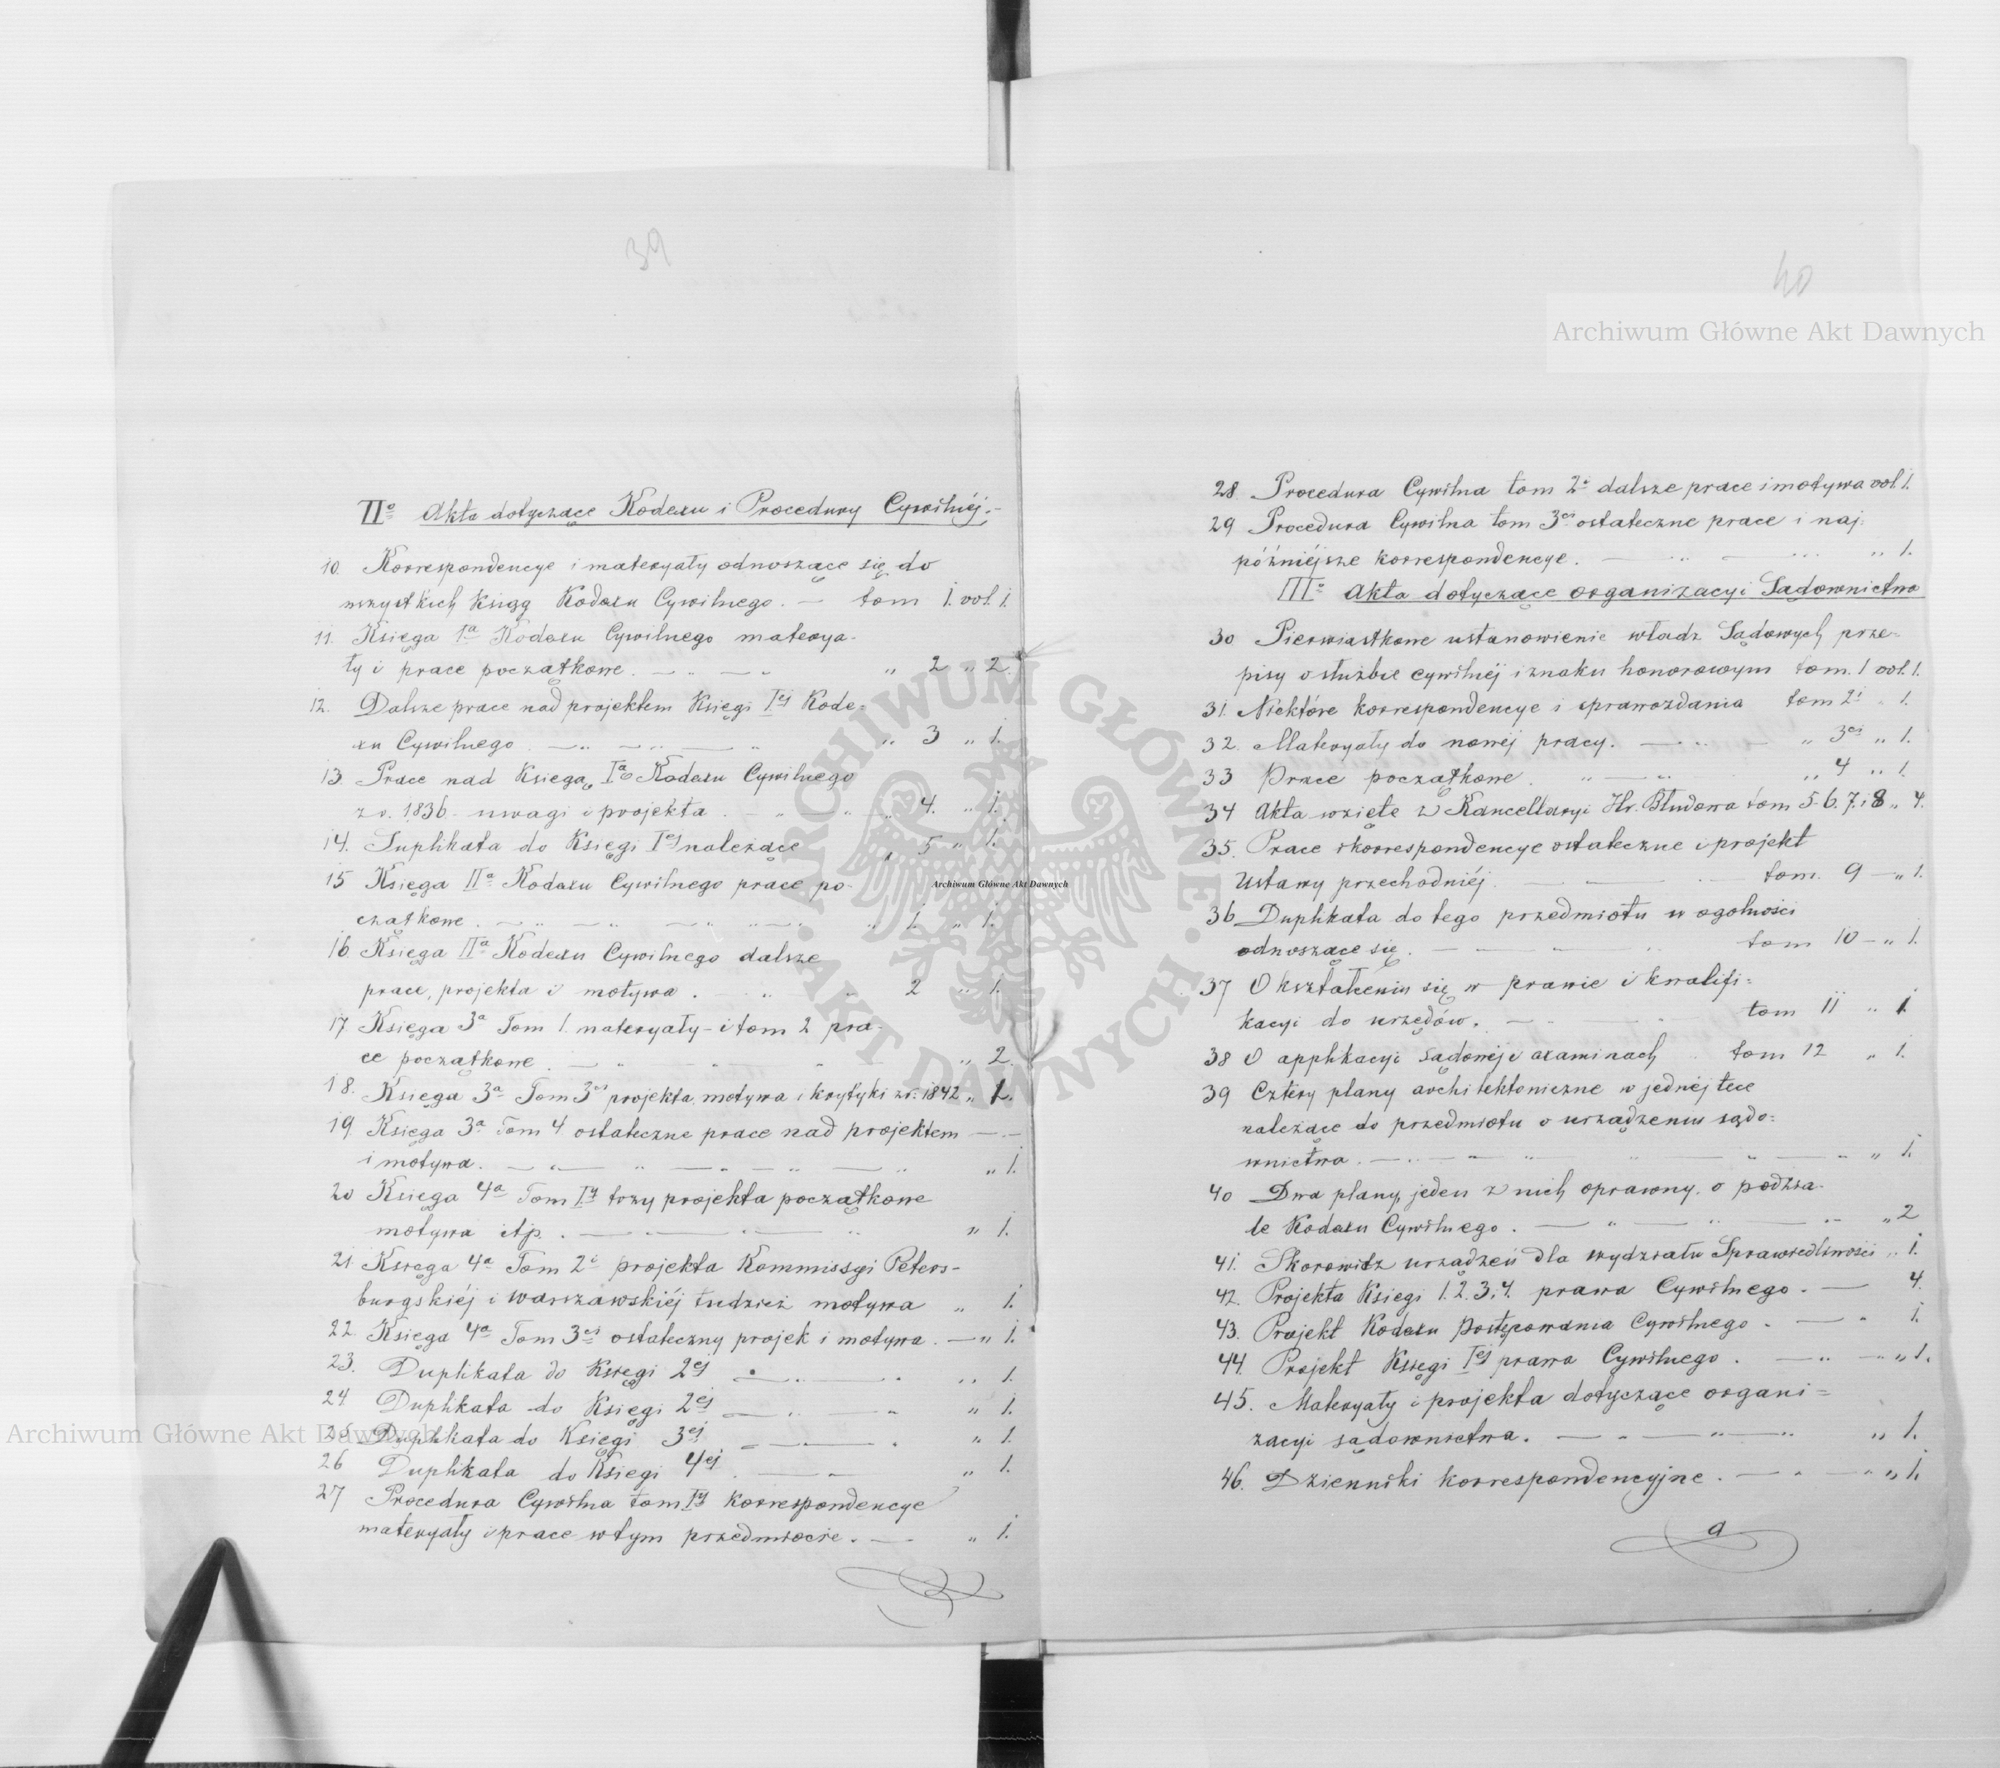 39
IIo Akta dotyczące Kodexu i Procedury Cywilnéj.-
10. Korrespondencye i materyały odnoszące się do
wszystkich Ksiąg Kodexu Cywilnego. — tom 1. vol. 1.
11. Księga 1a Kodexu Cywilnego materya-
ły i prace początkowe. — „ 2 „ 2.
12. Dalsze prace nad projektem Księgi Iej Kode-
xu Cywilnego — „ 3 „ 1.
13 Prace nad Księgą Ia Kodexu Cywilnego
z r. 1836. uwagi i projekta. „ 4. „ 1.
14. Duplikata do Księgi Iej należące „ 5 „ 1.
15 Księga IIa Kodexu Cywilnego prace po-
czątkowe. — „ 1. „ 1.
16 Księga IIa Kodexu Cywilnego dalsze
prace, projekta i motywa. 2 „ 1.
17 Księga 3a Tom 1. materyały - i tom 2 pra-
ce początkowe. — „ 2.
18. Księga 3a Tom 3ci projekta, motywa i krytyki z r. 1842 „ 1.
19. Księga 3a Tom 4 ostateczne prace nad projektem —
i motywa. — „ 1.
20 Księga 4a Tom Iy trzy projekta początkowe
motywa itp. — „ 1.
21 Księga 4a Tom 2i projekta Kommissyi Peters-
burgskiéj i warszawskiéj tudzież motywa „ 1.
22. Księga 4a Tom 3ci ostateczny projek i motywa. — „ 1.
23. Duplikata do Księgi 2ej — „ 1.
24 Duplikata do Księgi 2ej — „ 1.
25 Duplikata do Księgi 3ej — „ 1.
26 Duplikata do Księgi 4ej — „ 1.
27 Procedura Cywilna tom Iy Korrespondencye
materyały i prace w tym przedmiocie. — „ 1.
40
28 Procedura Cywilna tom 2i dalsze prace i motywa vol. 1.
29 Procedura Cywilna tom 3ci ostateczne prace i naj-
późniéjsze korrespondencye. — „ 1.
IIIo Akta dotyczące organizacyi Sądownictwa
30 Pierwiastkowe ustanowienie władz Sądowych prze-
pisy o służbie cywilnéj i znaku honorowym tom. 1 vol. 1.
31. Niektóre korrespondencye i sprawozdania tom 2i „ 1.
32. Materyały do nowéj pracy. — „ 3ci „ 1.
33 Prace początkowe. — „ 4 „ 1.
34 Akta wzięte z Kancellaryi Hr. Błudowa tom 5. 6. 7. i 8 „ 4.
35. Prace i korrespondencye ostateczne i projekt
Ustawy przechodniéj. — tom. 9 — „ 1.
36 Duplikata do tego przedmiotu w ogólności
odnoszące się. — tom 10 — „ 1.
37 O kształceniu się w prawie i kwalifi-
kacyi do urzędów. — tom 11 „ 1.
38 O applikacyi Sądowéj i examinach tom 12 „ 1.
39 Cztery plany architektoniczne w jednéj tece
należące do przedmiotu o urządzeniu sądo-
wnictwa. — „ 1.
40 Dwa plany, jeden z nich oprawny, o podzia-
le Kodexu Cywilnego. — „ 2
41. Skorowidz urządzeń dla wydziału Sprawiedliwości „ 1.
42. Projekta Księgi 1. 2. 3. 4. prawa Cywilnego. — 4.
43. Projekt Kodexu Postępowania Cywilnego. — 1.
44. Projekt Księgi Iej prawa Cywilnego. — „ 1.
45. Materyały i projekta dotyczące organi-
zacyi sądownictwa. — „ 1.
46. Dzienniki korrespondencyjne. — „ 1.
Archiwum Główne Akt Dawnych
Archiwum Główne Akt Dawnych
Archiwum Główne Akt Dawnych
ARCHIWUM GŁÓWNE · AKT DAWNYCH ·